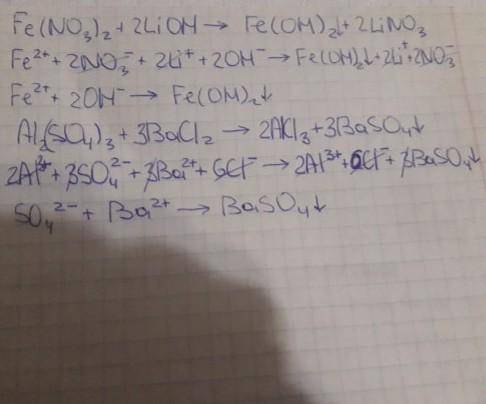 Fe(NO₃)₂ + 2LiOH → Fe(OH)₂↓ + 2LiNO₃
Fe²⁺ + 2NO₃⁻ + 2Li⁺ + 2OH⁻ → Fe(OH)₂↓ + 2Li⁺ + 2NO₃⁻
Fe²⁺ + 2OH⁻ → Fe(OH)₂↓
Al₂(SO₄)₃ + 3BaCl₂ → 2AlCl₃ + 3BaSO₄↓
2Al³⁺ + 3SO₄²⁻ + 3Ba²⁺ + 6Cl⁻ → 2Al³⁺ + 6Cl⁻ + 3BaSO₄↓
SO₄²⁻ + Ba²⁺ → BaSO₄↓